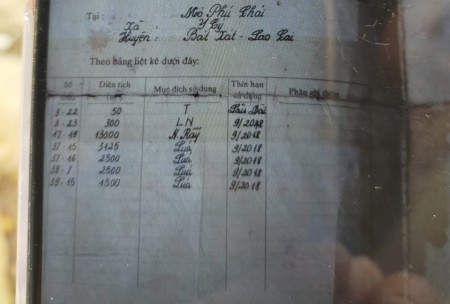 Tại: Mò Phú Chải
Xã Y Tý
Huyện: Bát Xát - Lào Cai
Theo bảng liệt kê dưới đây:
Số Diện tích Mục đích sử dụng Thời hạn sử dụng Phần ghi
9-22 50 T Lâu Dài
9-23 300 LN 9/2048
47-48 13000 N. Rẫy 9/2018
37-15 3125 Lúa 9/2018
37-16 2500 Lúa 9/2018
38-1 2500 Lúa 9/2018
39-15 1500 Lúa 9/2018